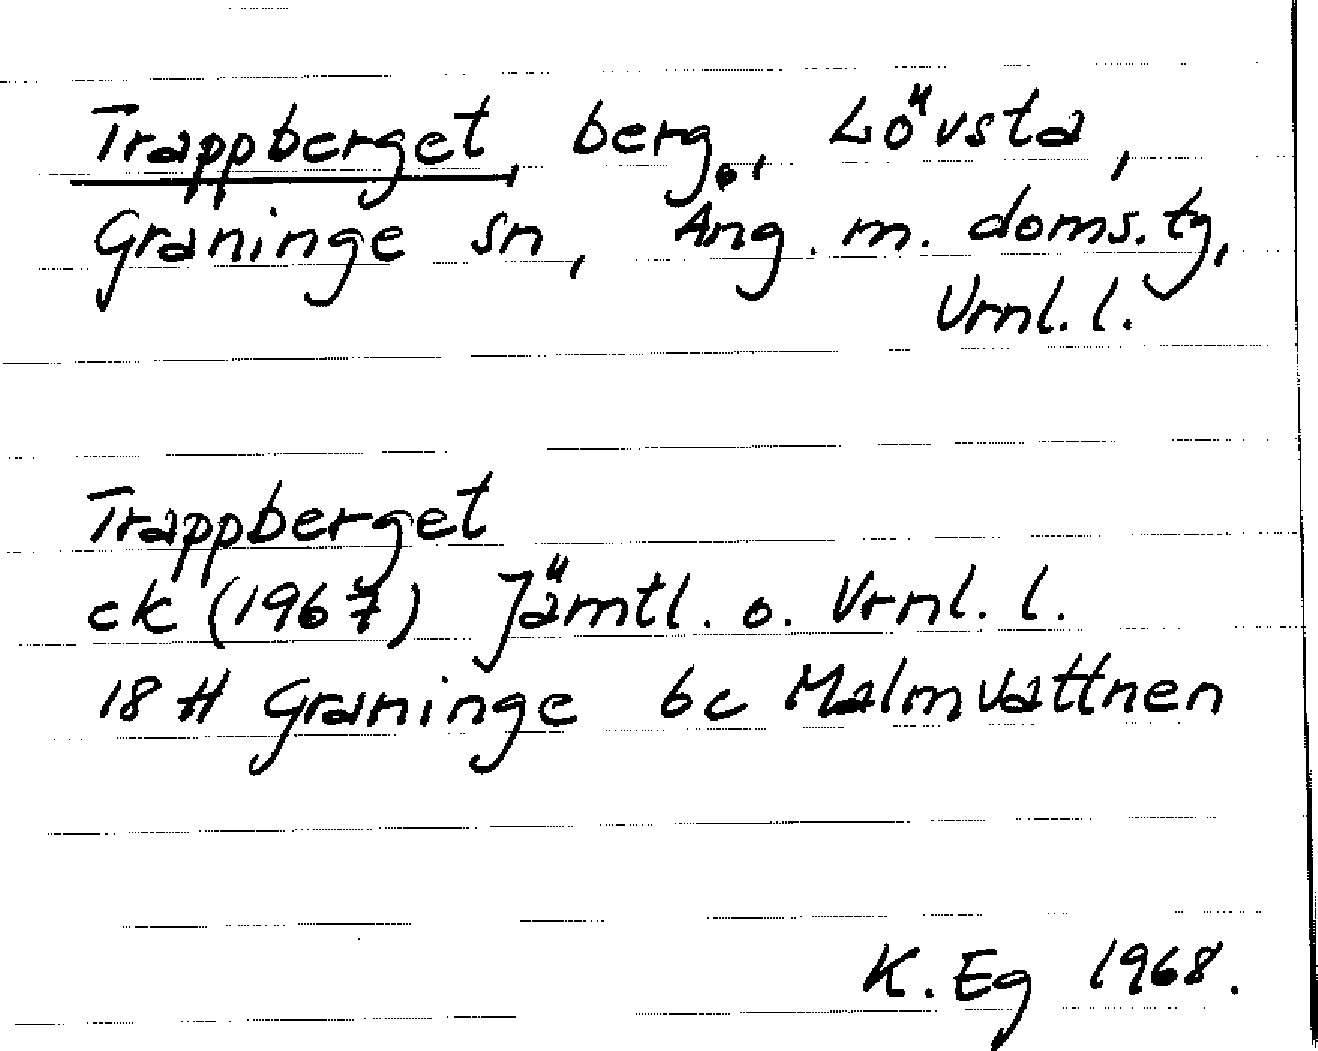 Trappberget, berg, Lövsta,
Graninge sn, Ång. m. doms. tg,
Vrnl. l.
Trappberget
ek (1967) Jämtl. o. Vrnl. l.
18 H Graninge 6c Malmvattnen
K. Eg 1968.